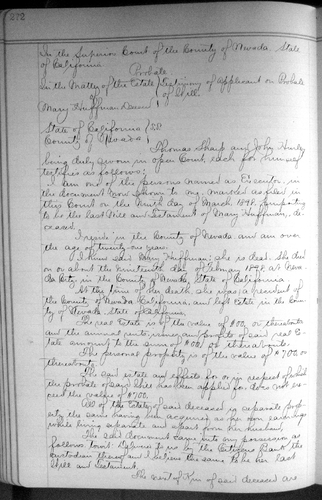 272
In the Superior Court of the County of Nevada State
of California
Probate
In the Matter of the Estate Testimony of Applicant on Probate
of of Will
Mary Huffman Deceased
State of California SS
County of Nevada
Thomas Sharp and John Hurley
being duly sworn in open Court, each for himself
testifies as follows:
I am one of the persons named as Executor, in
the document now shown to me, marked as filed in
this Court on the Ninth day of March 1898, purporting
to be the last Will and Testament of Mary Huffman, de-
ceased
I reside in the County of Nevada and am over
the age of twenty-one years.
I knew said Mary Huffman; she is dead. She died
on or about the Nineteenth day of February 1898, at Neva-
da City in the County of Nevada, State of California.
At the time of her death, she was a resident of
the County of Nevada California, and left estate in the Coun-
ty of Nevada State of California
The real Estate is of the value of or thereabouts
and the annual rents and profits of said real Es-
tate amount to the sum of or thereabouts.
The personal property is of the value of $700 or
thereabouts
The said estate and effects for or in respect of which
the probate of said Will has been applied for does not ex-
ceed the value of $700.
All of the Estate of said deceased is separate prop-
erty the same having been acquired as her own earnings
while living separate and apart from her husband,
The said document came into my possession as
follows to wit: Delivered to me by the Citizens Bank the
custodian thereof and I believe the same to be her last
Will and Testament.
The next of kin of said deceased are